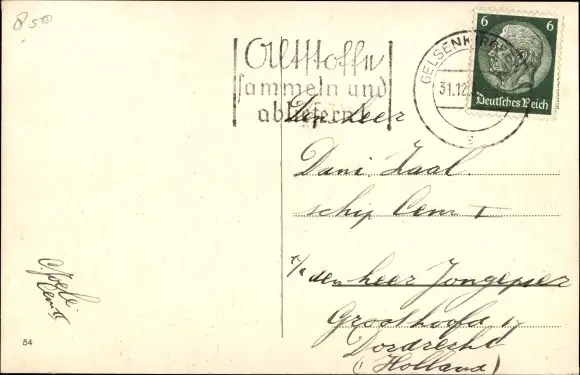 8 50
Altstoffe
sammeln und
abliefern
GELSENKIRCHEN
31.12.
s
6 6
Deutsches Reich
Den Heer
Dani. Zaal.
schip Cem I
p/a den heer Jongepier
Groothoofd
Dordrecht
(Holland)
Cem II
54